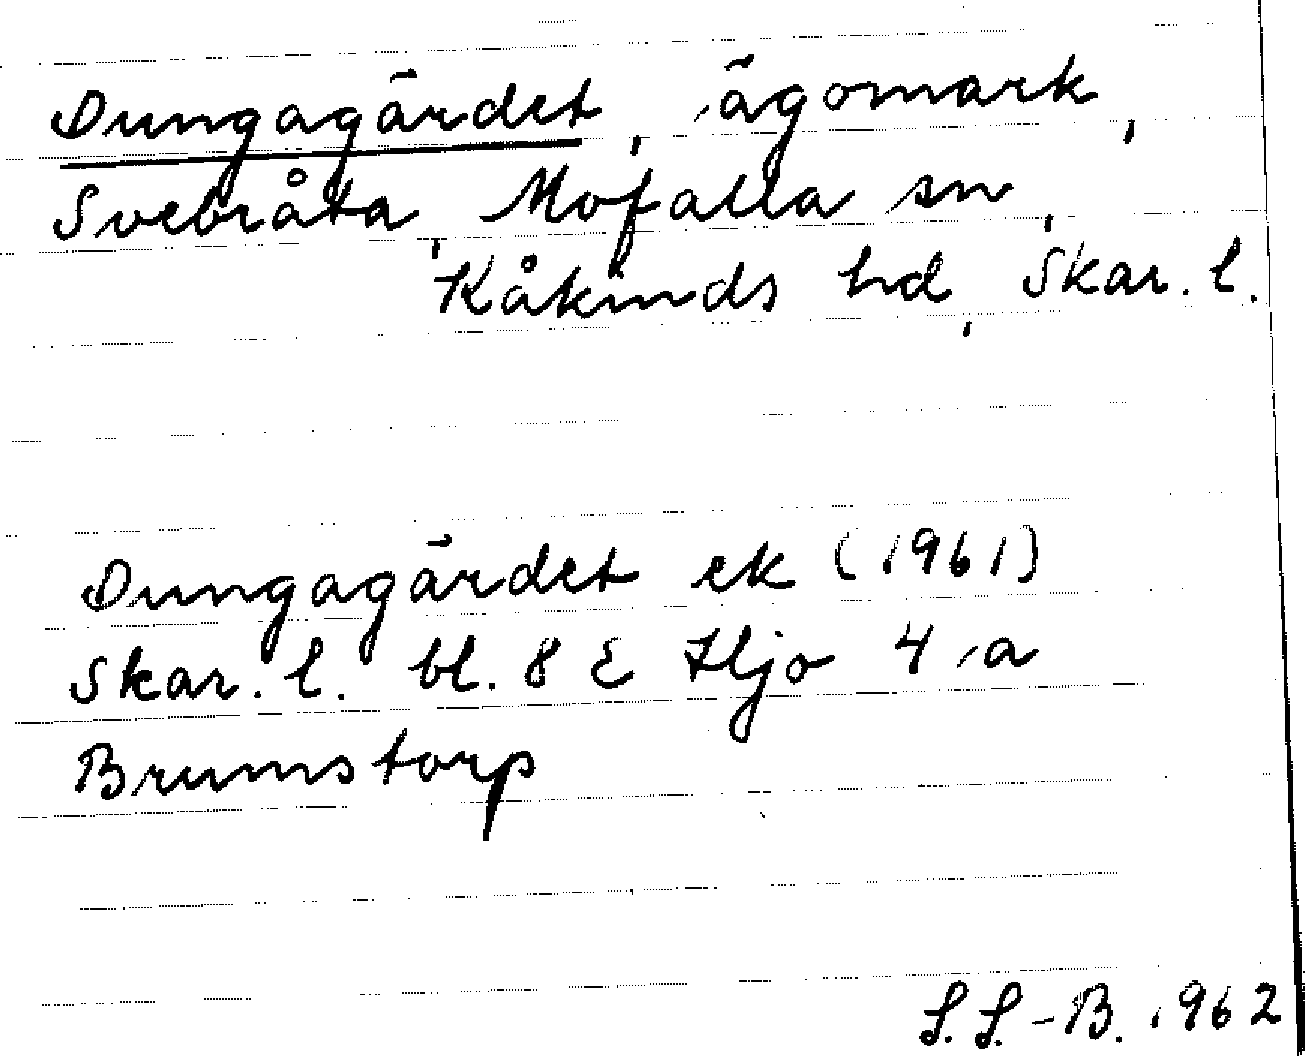 Dungagärdet, ägomark,
Svebråta, Mofalla sn,
Kåkinds hd, Skar. l.
Dungagärdet ek (1961)
Skar. l. bl. 8 E Hjo 4 a
Brumstorp
S. S.-B. 1962